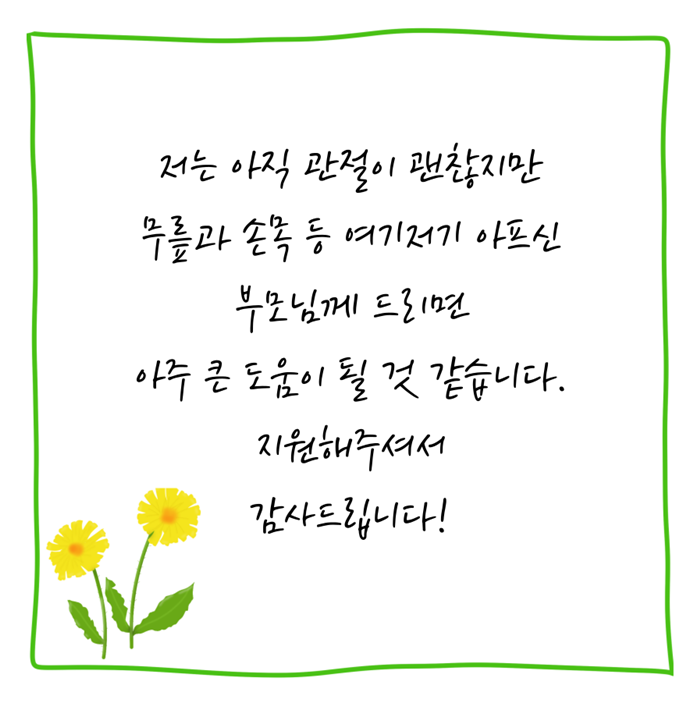 저는 아직 관절이 괜찮지만
무릎과 손목 등 여기저기 아프신
부모님께 드리면
아주 큰 도움이 될 것 같습니다.
지원해주셔서
감사드립니다!